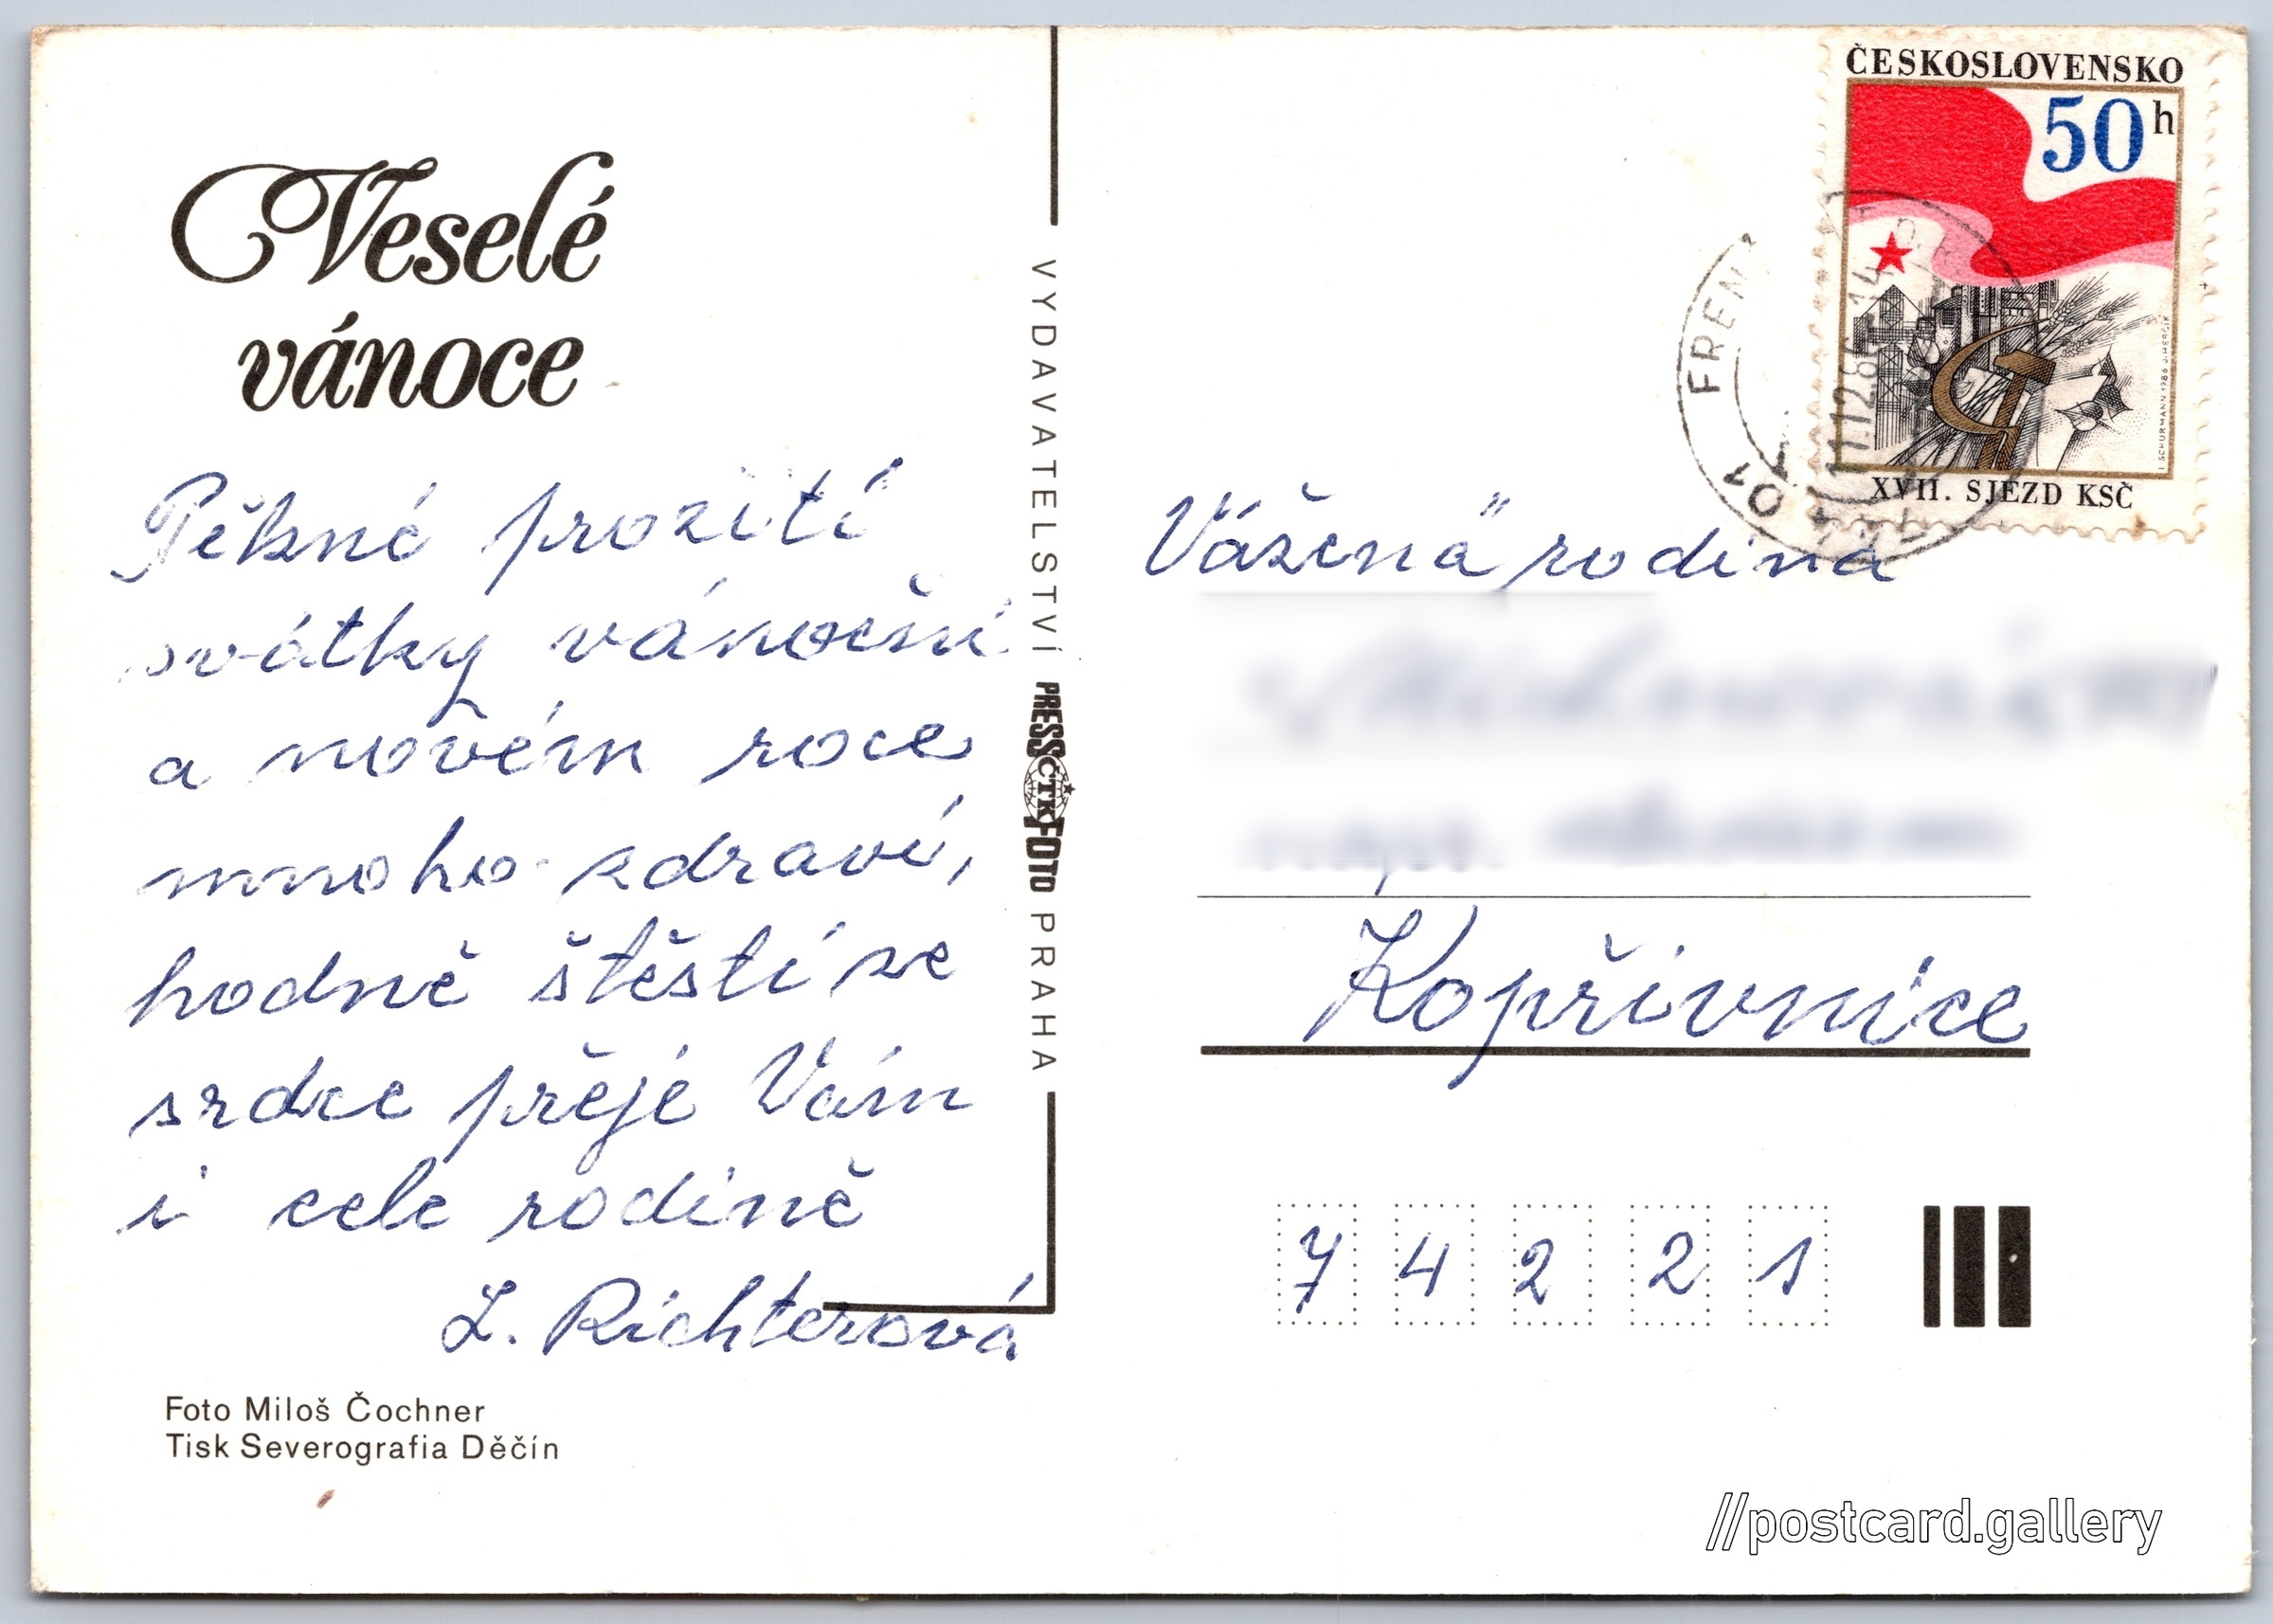 Veselé
vánoce
Pěkné prožití
svátky vánoční
a novém roce
mnoho zdraví,
hodně štěstí ze
srdce přejé Vám
i cele rodině
L. Richterová
Foto Miloš Čochner
Tisk Severografia Děčín
VYDAVATELSTVÍ PRESSFOTO PRAHA
ČTK
ČESKOSLOVENSKO
50h
I. SCHURMANN 1986 J. HERČÍK
XVII. SJEZD KSČ
FREN
01
11.12.86.14
Vážená rodina
Kopřivnice
7 4 2 2 1
//postcard.gallery